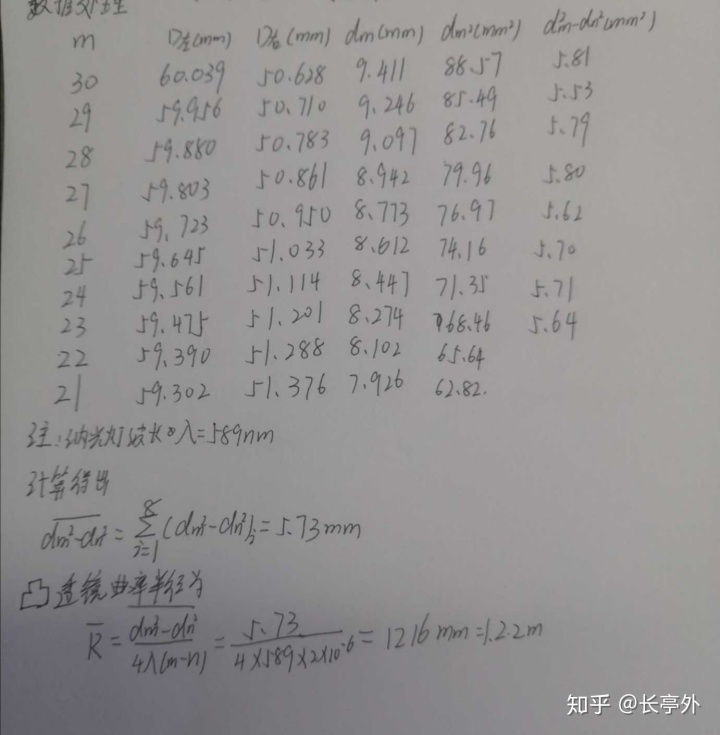 数据处理
m D左(mm) D右(mm) dm(mm) dm²(mm²) d²m-dn²(mm²)
30 60.039 50.628 9.411 88.57 5.81
29 59.956 50.710 9.246 85.49 5.53
28 59.880 50.783 9.097 82.76 5.79
27 59.803 50.861 8.942 79.96 5.80
26 59.723 50.950 8.773 76.97 5.62
25 59.645 51.033 8.612 74.16 5.70
24 59.561 51.114 8.447 71.35 5.71
23 59.475 51.201 8.274 68.46 5.64
22 59.390 51.288 8.102 65.64
21 59.302 51.376 7.926 62.82.
注:钠光灯波长λ=589nm
计算得出
dm²-dn² = Σ(dm²-dn²)i = 5.73mm
i=1 8
凸透镜曲率半径为
R = dm²-dn² / 4λ(m-n) = 5.73 / 4×589×2×10⁻⁶ = 1216mm=1.22m
知乎 @长亭外